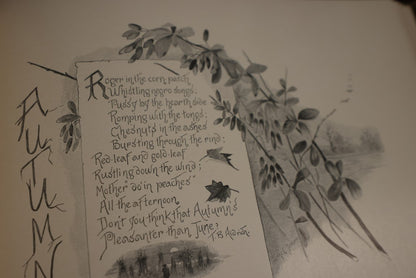 AUTUMN
Roger in the corn-patch
Whistling negro songs;
Pussy by the hearth side
Romping with the tongs;
Chesnuts in the ashes
Bursting through the rind;
Red-leaf and gold-leaf
Rustling down the wind;
Mother "doin' peaches"
All the afternoon,
Don't you think that Autumn's
Pleasanter than June,
T. B. Aldrich.